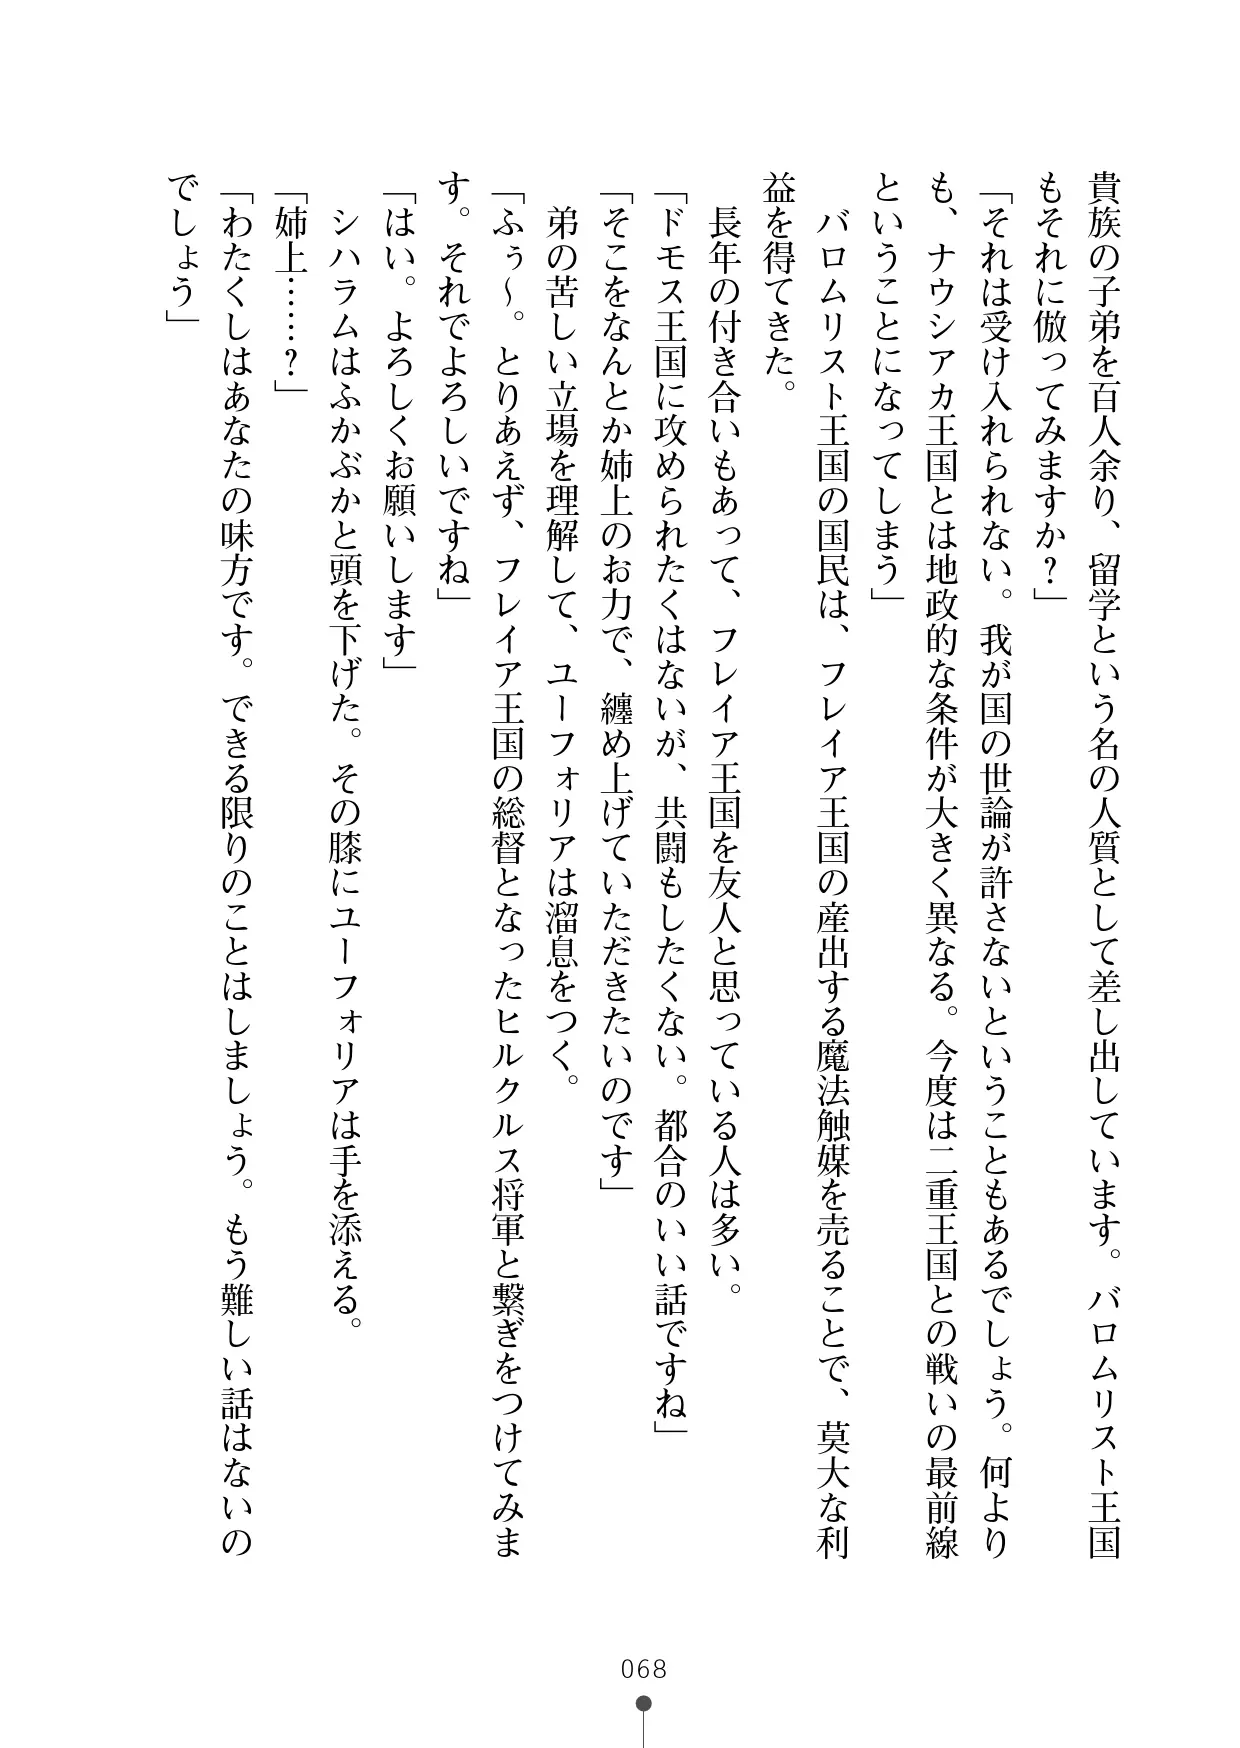 貴族の子弟を百人余り、留学という名の人質として差し出しています。バロムリスト王国
もそれに倣ってみますか？」
「それは受け入れられない。我が国の世論が許さないということもあるでしょう。何より
も、ナウシアカ王国とは地政的な条件が大きく異なる。今度は二重王国との戦いの最前線
ということになってしまう」
　バロムリスト王国の国民は、フレイア王国の産出する魔法触媒を売ることで、莫大な利
益を得てきた。
　長年の付き合いもあって、フレイア王国を友人と思っている人は多い。
「ドモス王国に攻められたくはないが、共闘もしたくない。都合のいい話ですね」
「そこをなんとか姉上のお力で、纏め上げていただきたいのです」
　弟の苦しい立場を理解して、ユーフォリアは溜息をつく。
「ふぅ～。とりあえず、フレイア王国の総督となったヒルクルス将軍と繋ぎをつけてみま
す。それでよろしいですね」
「はい。よろしくお願いします」
　シハラムはふかぶかと頭を下げた。その膝にユーフォリアは手を添える。
「姉上……？」
「わたくしはあなたの味方です。できる限りのことはしましょう。もう難しい話はないの
でしょう」
068